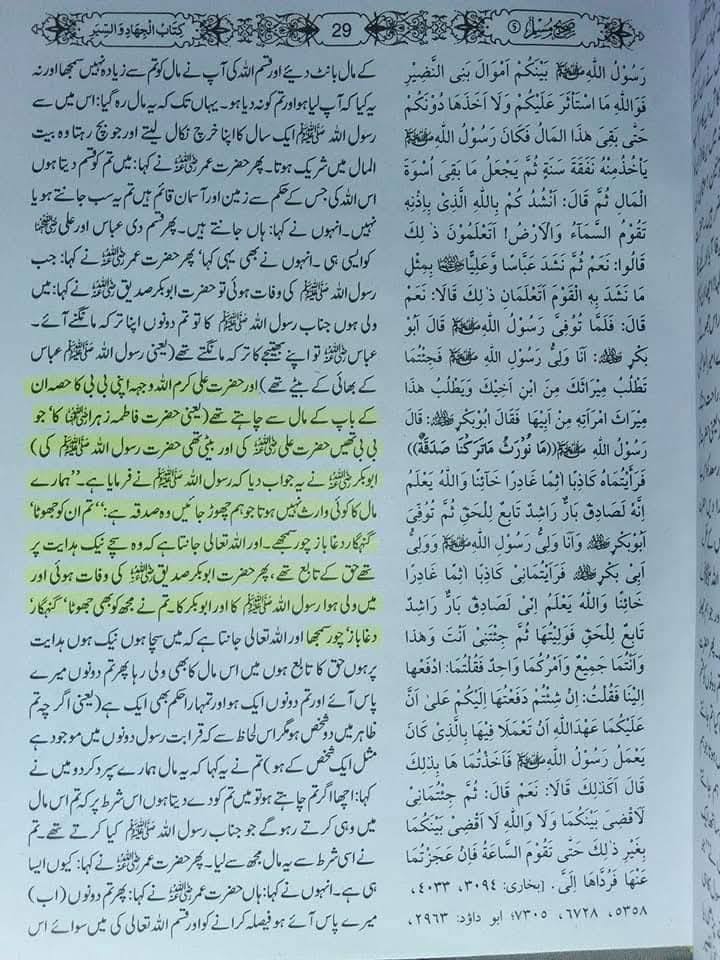 صحیح مسلم ⑤
29
کِتَابُ الْجِهَادِ وَالسِّيَرِ
رَسُوْلُ اللّٰهِ ﷺ بَيْنَكُمْ اَمْوَالَ بَنِى النَّضِيْرِ
فَوَاللّٰهِ مَا اسْتَاْثَرَ عَلَيْكُمْ وَلَا اَخَذَهَا دُوْنَكُمْ
حَتّٰى بَقِىَ هٰذَا الْمَالُ فَكَانَ رَسُوْلُ اللّٰهِ ﷺ
يَاْخُذُ مِنْهُ نَفَقَةَ سَنَةٍ ثُمَّ يَجْعَلُ مَا بَقِىَ اُسْوَةَ
الْمَالِ ثُمَّ قَالَ: اَنْشُدُ كُمْ بِاللّٰهِ الَّذِىْ بِاِذْنِهٖ
تَقُوْمُ السَّمَآءُ وَالْاَرْضُ! اَتَعْلَمُوْنَ ذٰ لِكَ
قَالُوْا: نَعَمْ ثُمَّ نَشَدَ عَبَّاسًا وَعَلِيًّا ؓ بِمِثْلِ
مَا نَشَدَ بِهِ الْقَوْمَ اَتَعْلَمَانِ ذٰلِكَ قَالَا: نَعَمْ
قَالَ: فَلَمَّا تُوُفِّىَ رَسُوْلُ اللّٰهِ ﷺ قَالَ اَبُوْ
بَكْرٍ ؓ: اَنَا وَلِىُّ رَسُوْلِ اللّٰهِ ﷺ فَجِئْتُمَا
تَطْلُبُ مِيْرَاثَكَ مِنِ ابْنِ اَخِيْكَ وَيَطْلُبُ هٰذَا
مِيْرَاثَ امْرَاَتِهٖ مِنْ اَبِيْهَا فَقَالَ اَبُوْبَكْرٍ ؓ: قَالَ
رَسُوْلُ اللّٰهِ ﷺ ((مَا نُوْرَثُ مَاتَرَكْنَا صَدَقَةٌ))
فَرَاَيْتُمَاهُ كَاذِبًا اٰثِمًا غَادِرًا خَآئِنًا وَاللّٰهُ يَعْلَمُ
اِنَّهٗ لَصَادِقٌ بَارٌّ رَاشِدٌ تَابِعٌ لِلْحَقِّ ثُمَّ تُوُفِّىَ
اَبُوْبَكْرٍ ؓ وَاَنَا وَلِىُّ رَسُوْلِ اللّٰهِ ﷺ وَوَلِىُّ
اَبِىْ بَكْرٍ ؓ فَرَاَيْتُمَانِىْ كَاذِبًا اٰثِمًا غَادِرًا
خَائِنًا وَاللّٰهُ يَعْلَمُ اِنِّىْ لَصَادِقٌ بَارٌّ رَاشِدٌ
تَابِعٌ لِلْحَقِّ فَوَلِيْتُهَا ثُمَّ جِئْتَنِىْ اَنْتَ وَهٰذَا
وَاَنْتُمَا جَمِيْعٌ وَاَمْرُكُمَا وَاحِدٌ فَقُلْتُمَا: ادْفَعْهَا
اِلَيْنَا فَقُلْتُ: اِنْ شِئْتُمْ دَفَعْتُهَا اِلَيْكُمْ عَلٰى اَنَّ
عَلَيْكُمَا عَهْدَ اللّٰهِ اَنْ تَعْمَلَا فِيْهَا بِالَّذِىْ كَانَ
يَعْمَلُ رَسُوْلُ اللّٰهِ ﷺ فَاَخَذْتُمَا هَا بِذٰلِكَ
قَالَ اَكَذٰلِكَ قَالَا: نَعَمْ قَالَ: ثُمَّ جِئْتُمَانِىْ
لَاَقْضِىَ بَيْنَكُمَا وَلَا وَاللّٰهِ لَا اَقْضِىْ بَيْنَكُمَا
بِغَيْرِ ذٰ لِكَ حَتّٰى تَقُوْمَ السَّاعَةُ فَاِنْ عَجَزْتُمَا
عَنْهَا فَرُدَّاهَا اِلَىَّ. [بخاری: ۳۰۹٤، ٤۰۳۳،
٥٣٥٨، ٦٧٢٨، ٧٣٠٥؛ ابو داؤد: ٢٩٦٣،
کے مال بانٹ دیئے اور قسم اللہ کی آپ نے مال کو تم سے زیادہ نہیں سمجھا اور نہ
یہ کیا کہ آپ لیا ہو اور تم کو نہ دیا ہو۔ یہاں تک کہ یہ مال رہ گیا: اس میں سے
رسول اللہ ﷺ ایک سال کا اپنا خرچ نکال لیتے اور جو بچ رہتا وہ بیت
المال میں شریک ہوتا۔ پھر حضرت عمر ؓ نے کہا: میں تم کو قسم دیتا ہوں
اس اللہ کی جس کے حکم سے زمین اور آسمان قائم ہیں تم یہ سب جانتے ہو یا
نہیں۔ انہوں نے کہا: ہاں جانتے ہیں۔ پھر قسم دی عباس اور علی ؓ
کو ایسی ہی۔ انہوں نے بھی یہی کہا، پھر حضرت عمر ؓ نے کہا: جب
رسول اللہ ﷺ کی وفات ہوئی تو حضرت ابوبکر صدیق ؓ نے کہا: میں
ولی ہوں جناب رسول اللہ ﷺ کا تو تم دونوں اپنا ترکہ مانگنے آئے۔
عباس ؓ تو اپنے بھتیجے کا ترکہ مانگتے تھے (یعنی رسول اللہ ﷺ عباس
کے بھائی کے بیٹے تھے) اور حضرت علی کرم اللہ وجہہ اپنی بی بی کا حصہ ان
کے باپ کے مال سے چاہتے تھے (یعنی حضرت فاطمہ زہرا ؓ کا، جو
بی بی تھیں حضرت علی ؓ کی اور بیٹی تھی حضرت رسول اللہ ﷺ کی)
ابوبکر ؓ نے یہ جواب دیا کہ رسول اللہ ﷺ نے فرمایا ہے۔ ”ہمارے
مال کا کوئی وارث نہیں ہوتا جو ہم چھوڑ جائیں وہ صدقہ ہے:“ تم ان کو جھوٹا،
گنہگار دغاباز چور سمجھے۔ اور اللہ تعالیٰ جانتا ہے کہ وہ سچے نیک ہدایت پر
تھے حق کے تابع تھے، پھر حضرت ابوبکر صدیق ؓ کی وفات ہوئی اور
میں ولی ہوا رسول اللہ ﷺ کا اور ابوبکر کا۔ تم نے مجھ کو بھی جھوٹا، گنہگار،
دغاباز، چور سمجھا اور اللہ تعالیٰ جانتا ہے کہ میں سچا ہوں نیک ہوں ہدایت
پر ہوں حق کا تابع ہوں میں اس مال کا بھی ولی رہا پھر تم دونوں میرے
پاس آئے اور تم دونوں ایک ہو اور تمہارا حکم بھی ایک ہے (یعنی اگرچہ تم
ظاہر میں دو شخص ہو مگر اس لحاظ سے کہ قرابت رسول دونوں میں موجود ہے
مثل ایک شخص کے ہو) تم نے یہ کہا کہ یہ مال ہمارے سپرد کر دو میں نے
کہا: اچھا اگر تم چاہتے ہو تو میں تم کو دے دیتا ہوں اس شرط پر کہ تم اس مال
میں وہی کرتے رہو گے جو جناب رسول اللہ ﷺ کیا کرتے تھے۔ تم
نے اسی شرط سے یہ مال مجھ سے لیا۔ پھر حضرت عمر ؓ نے کہا: کیوں ایسا
ہی ہے۔ انہوں نے کہا: ہاں حضرت عمر ؓ نے کہا: پھر تم دونوں (اب)
میرے پاس آئے ہو فیصلہ کرانے کو اور قسم اللہ تعالیٰ کی میں سوائے اس